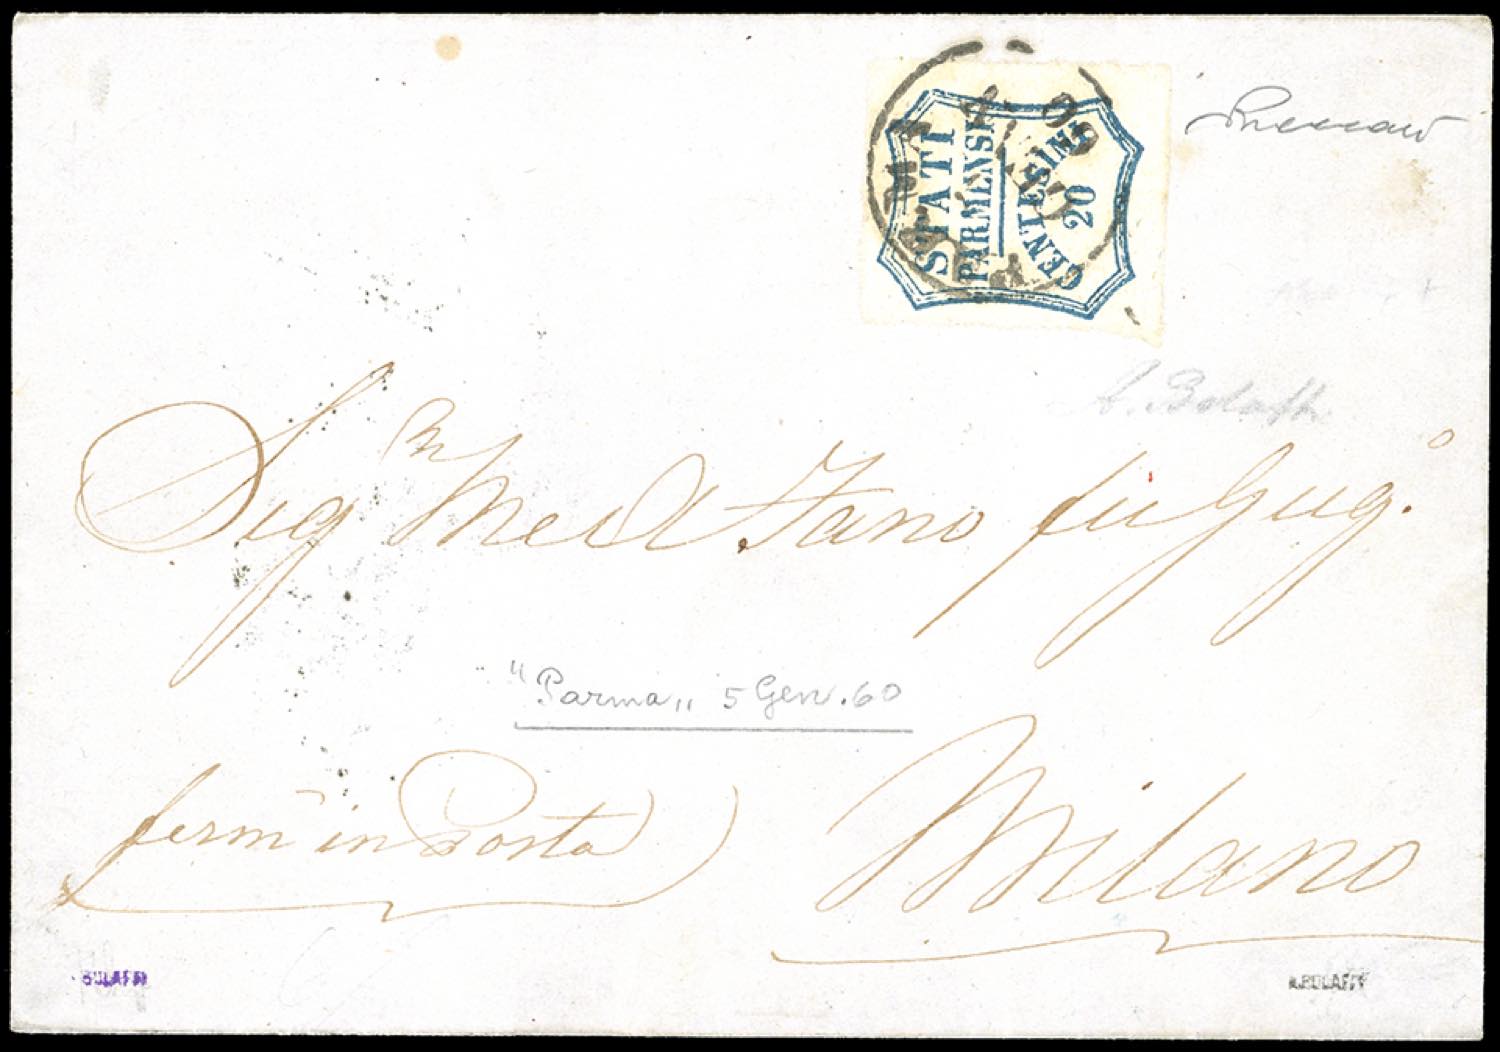 STATI
PARMENSI
CENTESIMI
20
60
A. Bolaffi
Sig.m Med. Fano fu Gug.o
"Parma" 5 Gen. 60
ferm in Posta)
Milano
BOLAFFI
A.BOLAFFI